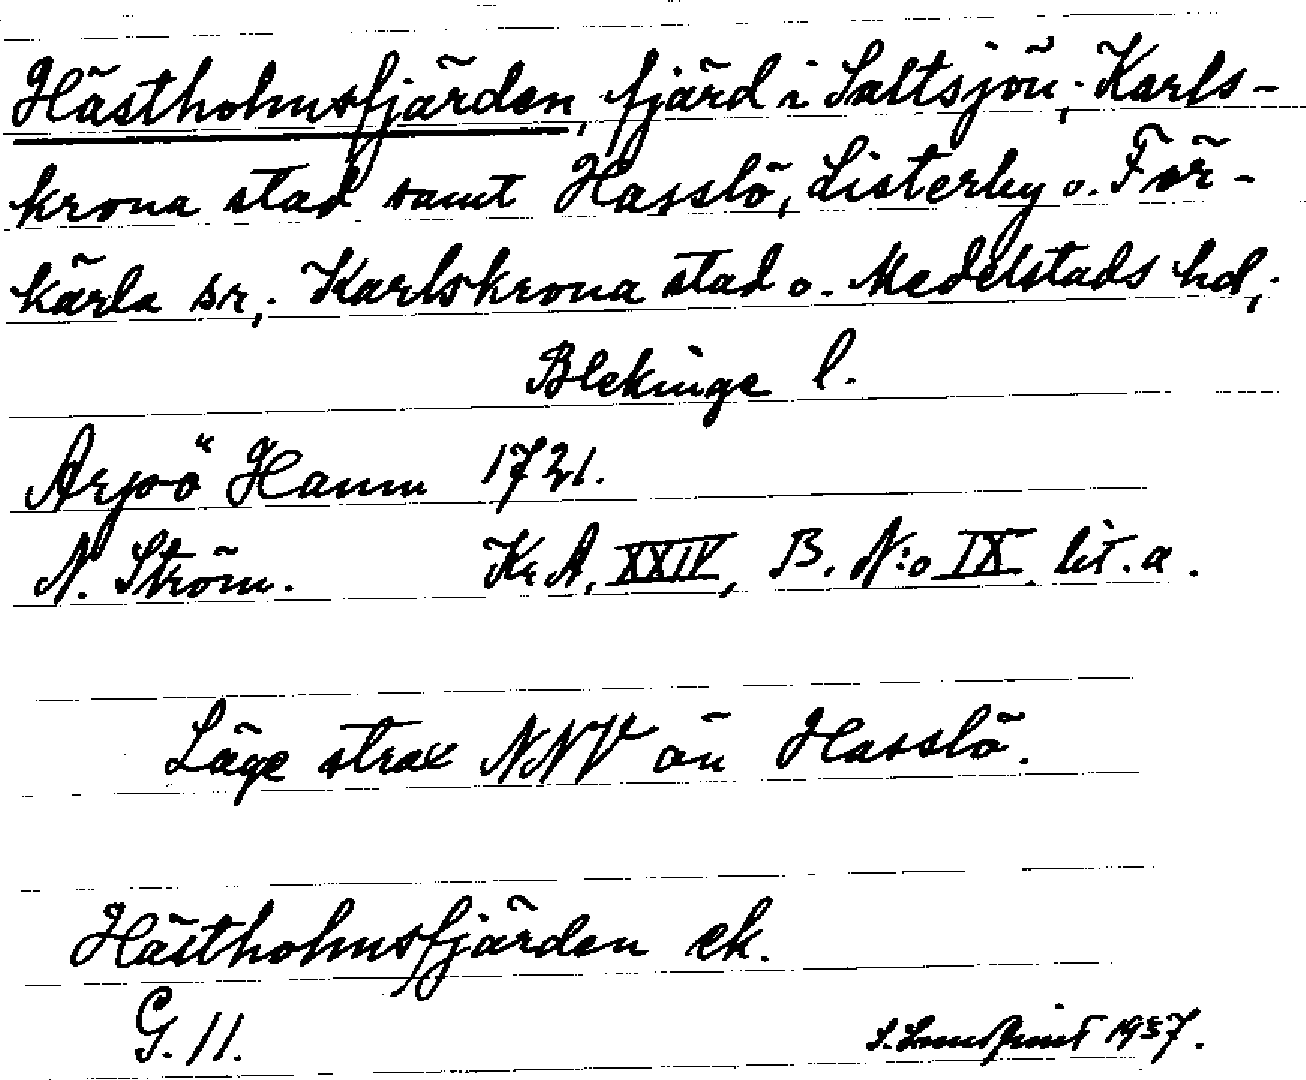 Hästholmsfjärden, fjärd i Saltsjön; Karls-
krona stad samt Hasslö, Listerby o. För-
kärla sr; Karlskrona stad o. Medelstads hd;
Blekinge l.
Arpö Hamn 1721.
N. Ström. Kr A, XXIV, B. N:o IX lit. a.
Läge strax NNV ön Hasslö.
Hästholmsfjärden ek.
G. 11. 1937.